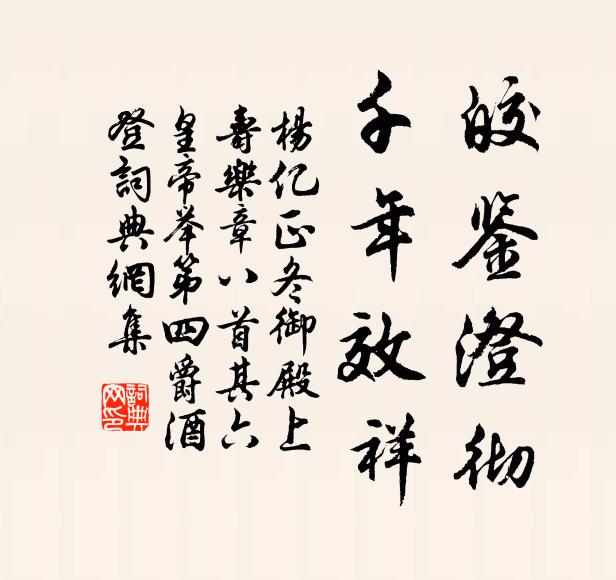 皎鉴澄彻
千年效祥
楊亿正冬御殿上
壽樂章八首其六
皇帝举第四爵酒
登詞典網集
詞典
网印